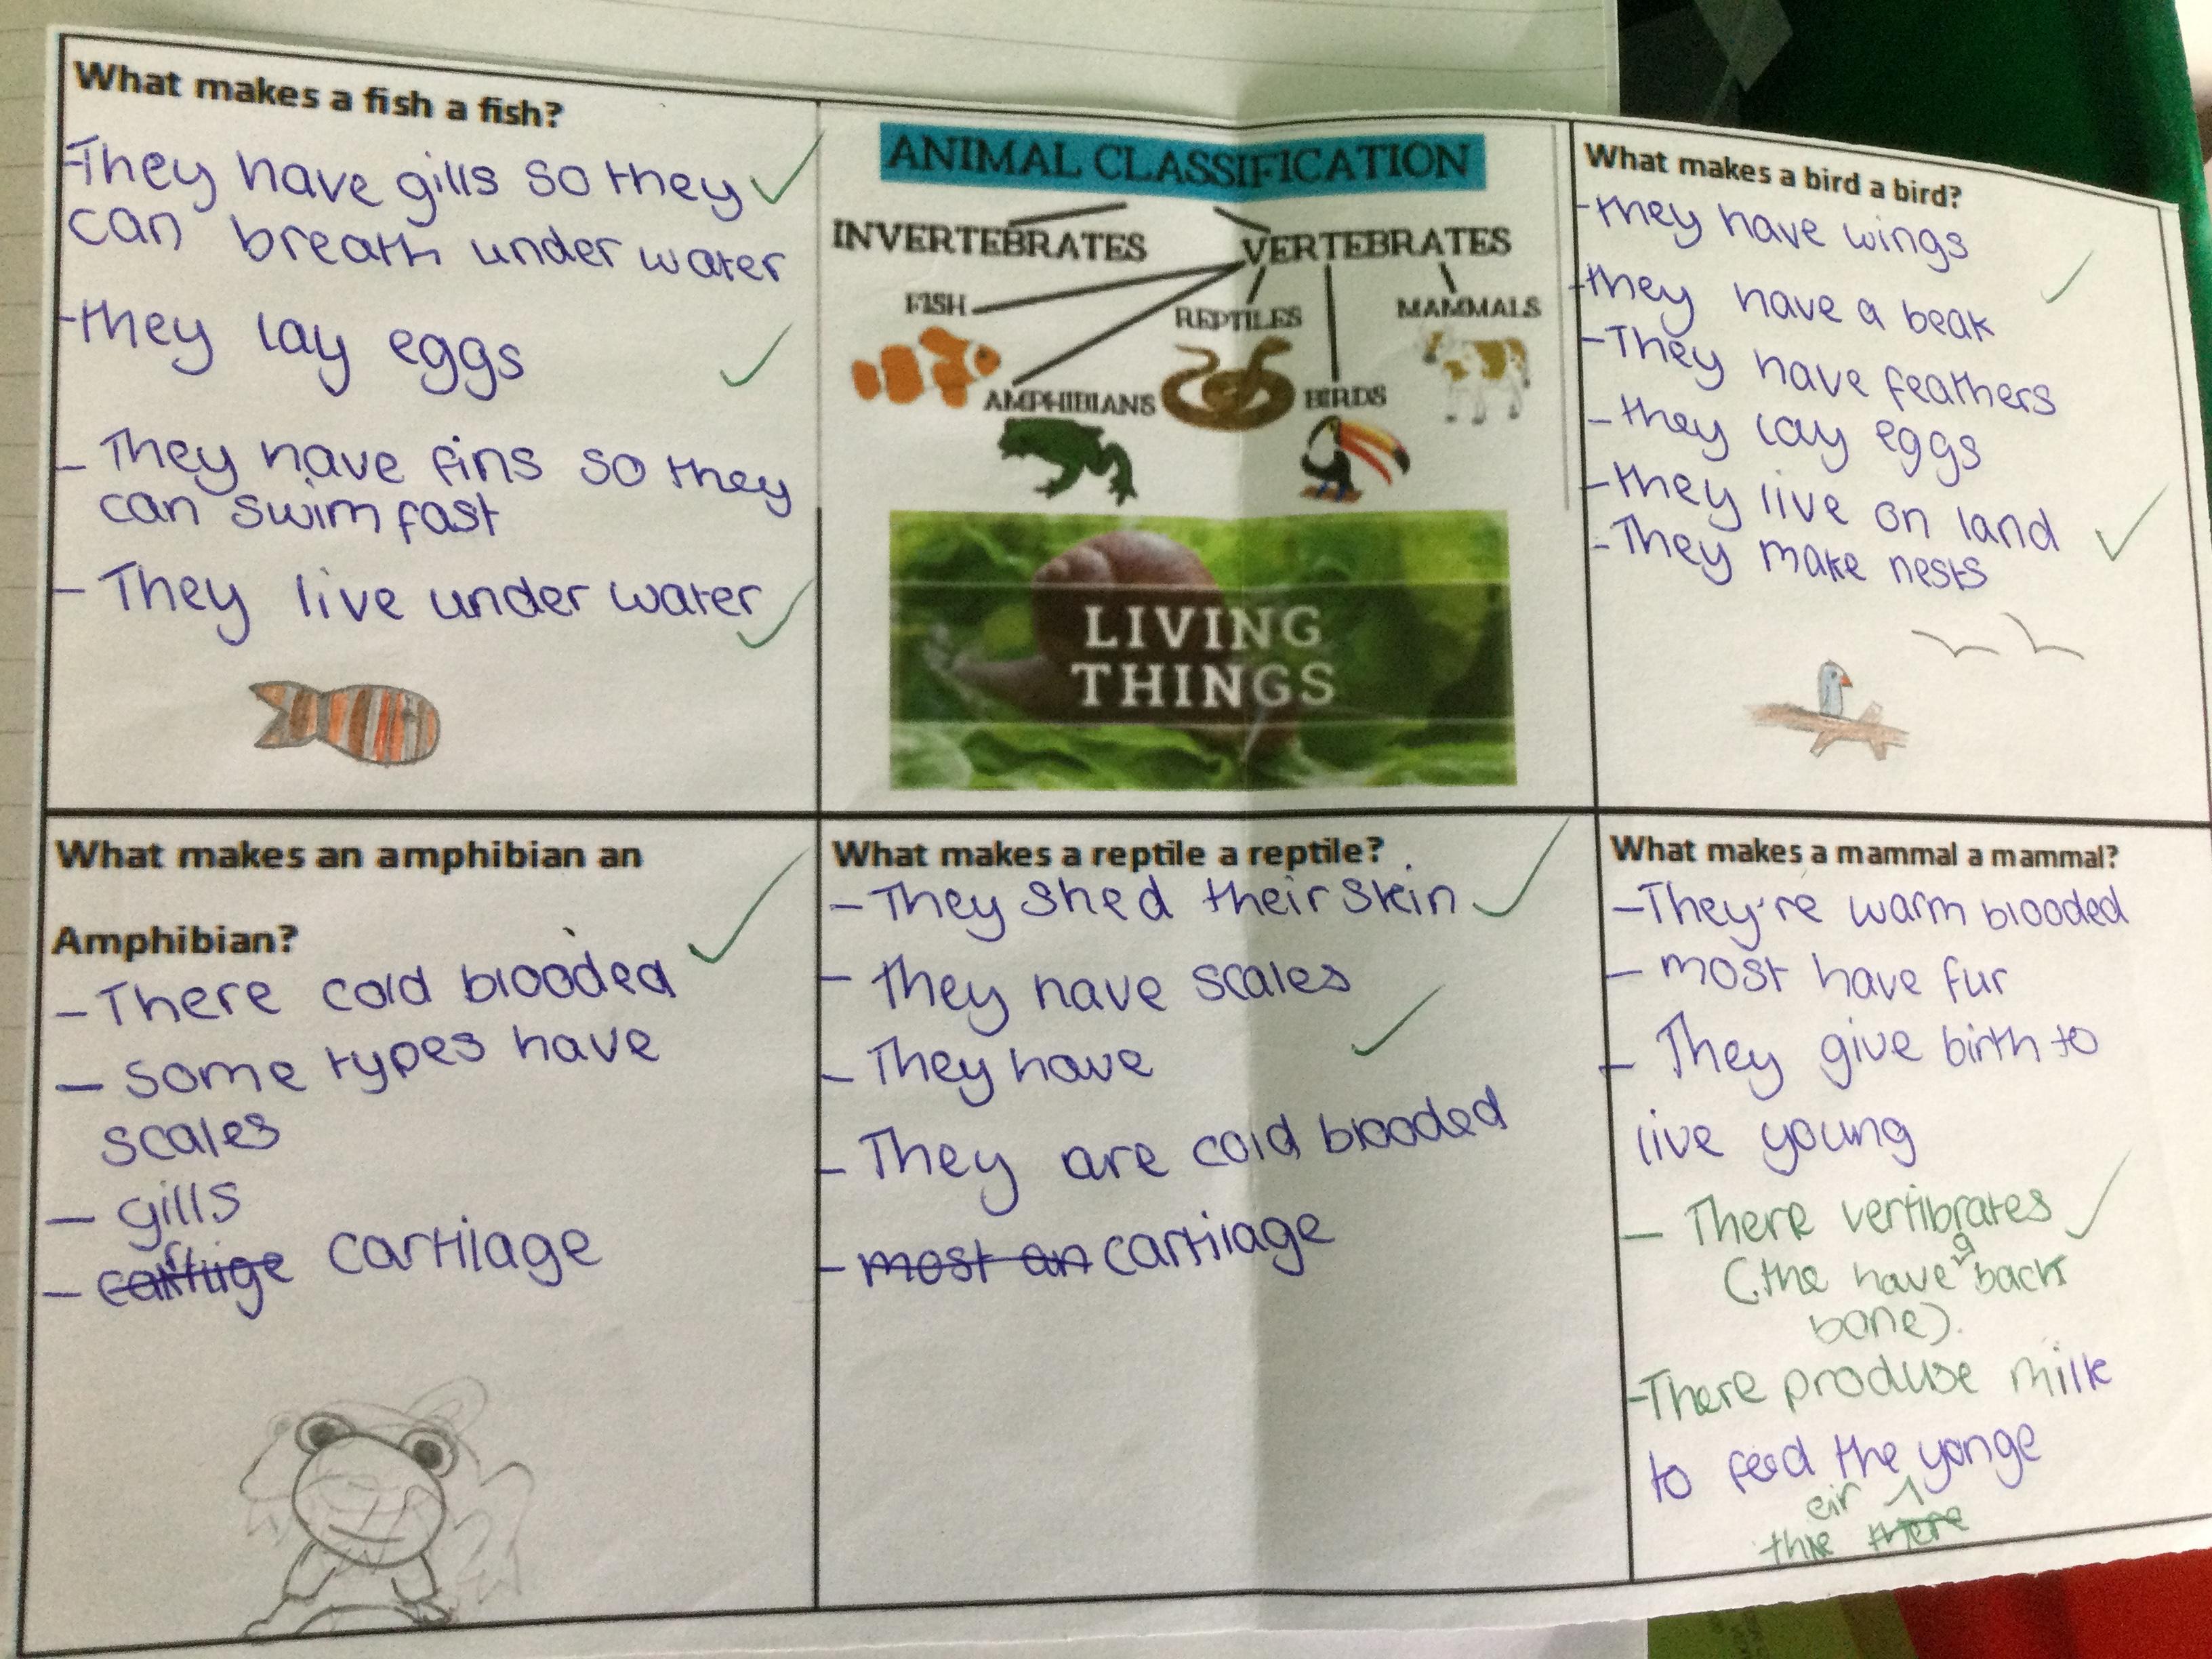 What makes a fish a fish?
-They have gills so they
can breath under water
-they lay eggs
- They have fins so they
can swim fast
- They live under water
ANIMAL CLASSIFICATION
INVERTEBRATES
VERTEBRATES
FISH
REPTILES
MAMMALS
AMPHIBIANS
BIRDS
LIVING
THINGS
What makes a bird a bird?
-they have wings
-they have a beak
-They have feathers
-they lay eggs
-they live on land
-They make nests
What makes an amphibian an
Amphibian?
- There cold blooded
- some types have
scales
- gills
- cartilage
What makes a reptile a reptile?
- They shed their skin
- they have scales
- They have
- They are cold blooded
- most an cartilage
What makes a mammal a mammal?
-They're warm blooded
- most have fur
- They give birth to
live young
- There vertibrates
(the have a back
bone).
-There produse milk
to feed the yonge
eir
the there